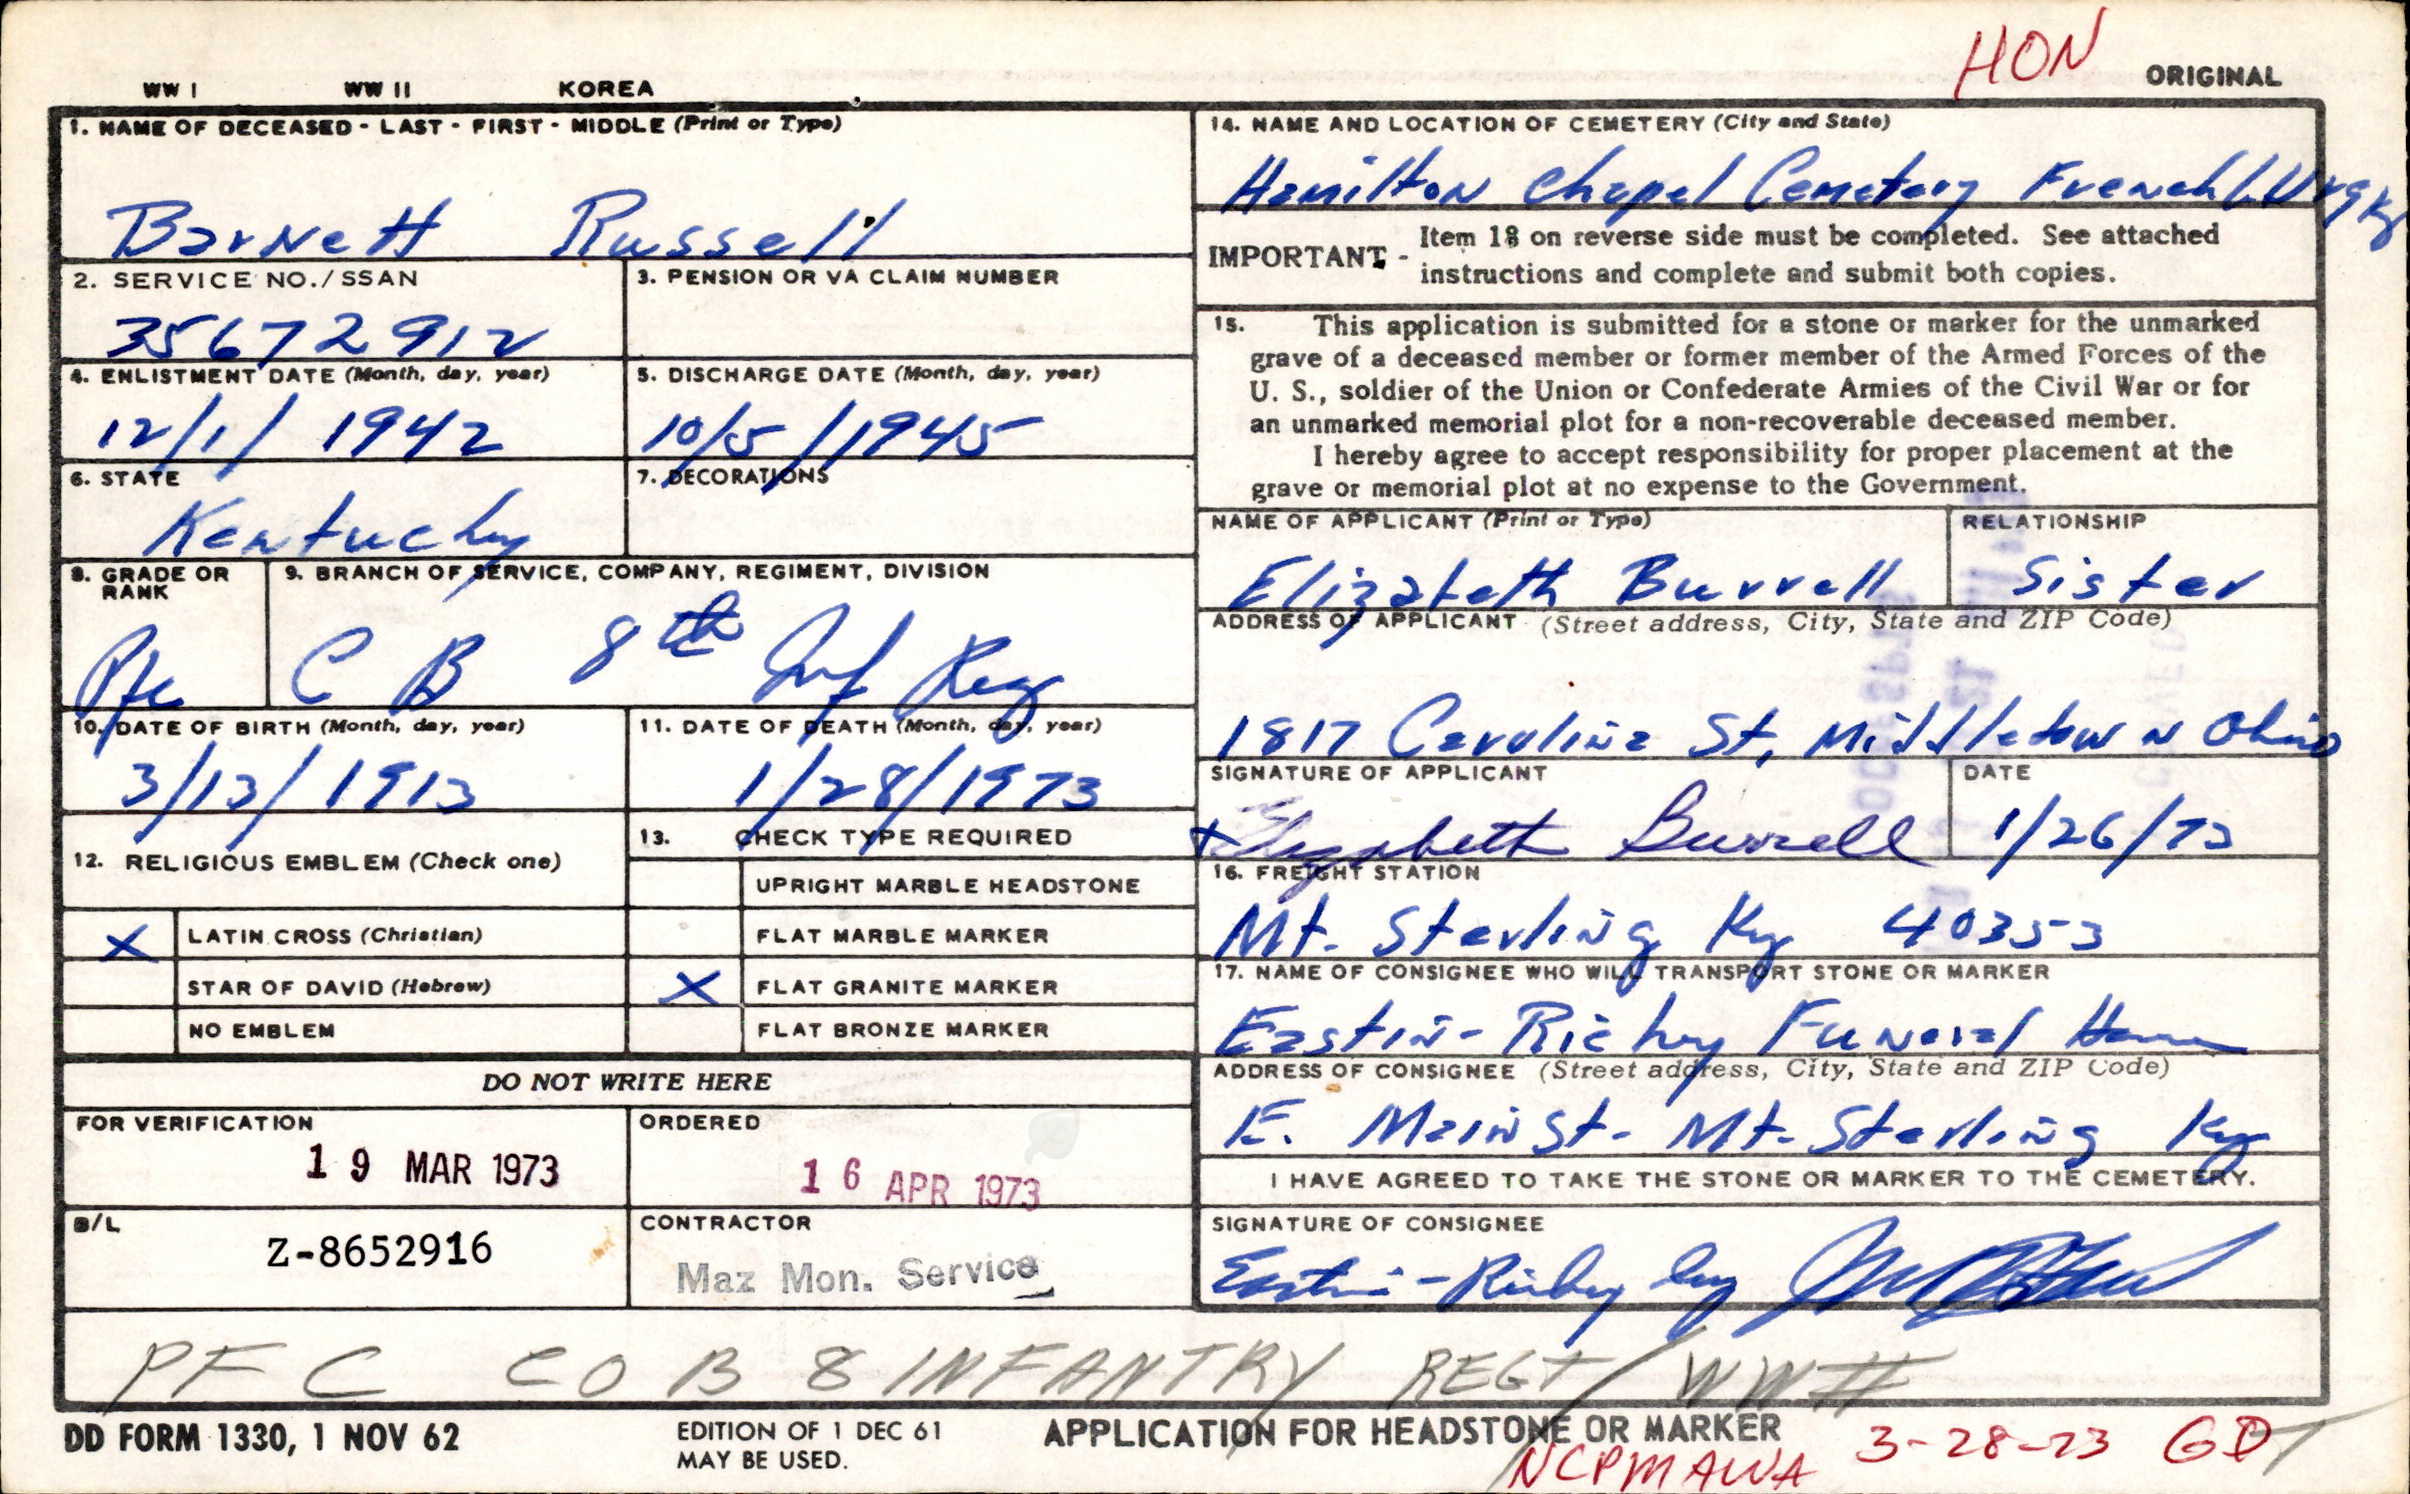 HON
ORIGINAL
WW I WW II KOREA
1. NAME OF DECEASED - LAST - FIRST - MIDDLE (Print or Type)
Barnett Russell
2. SERVICE NO./SSAN
35672912
3. PENSION OR VA CLAIM NUMBER
4. ENLISTMENT DATE (Month, day, year)
12/1/1942
5. DISCHARGE DATE (Month, day, year)
10/5/1945
6. STATE
Kentucky
7. DECORATIONS
8. GRADE OR RANK
Pfc
9. BRANCH OF SERVICE, COMPANY, REGIMENT, DIVISION
C B 8th Inf Reg
10. DATE OF BIRTH (Month, day, year)
3/13/1913
11. DATE OF DEATH (Month, day, year)
1/28/1973
12. RELIGIOUS EMBLEM (Check one)
X LATIN CROSS (Christian)
STAR OF DAVID (Hebrew)
NO EMBLEM
13. CHECK TYPE REQUIRED
UPRIGHT MARBLE HEADSTONE
FLAT MARBLE MARKER
X FLAT GRANITE MARKER
FLAT BRONZE MARKER
DO NOT WRITE HERE
FOR VERIFICATION
19 MAR 1973
ORDERED
16 APR 1973
B/L
Z-8652916
CONTRACTOR
Maz Mon. Service
14. NAME AND LOCATION OF CEMETERY (City and State)
Hamilton Chapel Cemetery Frenchburg Ky
IMPORTANT - Item 18 on reverse side must be completed. See attached
instructions and complete and submit both copies.
15. This application is submitted for a stone or marker for the unmarked
grave of a deceased member or former member of the Armed Forces of the
U. S., soldier of the Union or Confederate Armies of the Civil War or for
an unmarked memorial plot for a non-recoverable deceased member.
I hereby agree to accept responsibility for proper placement at the
grave or memorial plot at no expense to the Government.
NAME OF APPLICANT (Print or Type)
Elizabeth Burrell
RELATIONSHIP
Sister
ADDRESS OF APPLICANT (Street address, City, State and ZIP Code)
1817 Carolina St, Middletown Ohio
SIGNATURE OF APPLICANT
X Elizabeth Burrell
DATE
1/26/73
16. FREIGHT STATION
Mt. Sterling Ky 40353
17. NAME OF CONSIGNEE WHO WILL TRANSPORT STONE OR MARKER
Eastin-Richey Funeral Home
ADDRESS OF CONSIGNEE (Street address, City, State and ZIP Code)
E. Main St. Mt. Sterling Ky
I HAVE AGREED TO TAKE THE STONE OR MARKER TO THE CEMETERY.
SIGNATURE OF CONSIGNEE
Eastin-Richey by
PFC CO B 8 INFANTRY REGT / WW II
DD FORM 1330, 1 NOV 62
EDITION OF 1 DEC 61
MAY BE USED.
APPLICATION FOR HEADSTONE OR MARKER
NCPMAWA 3-28-73 GD